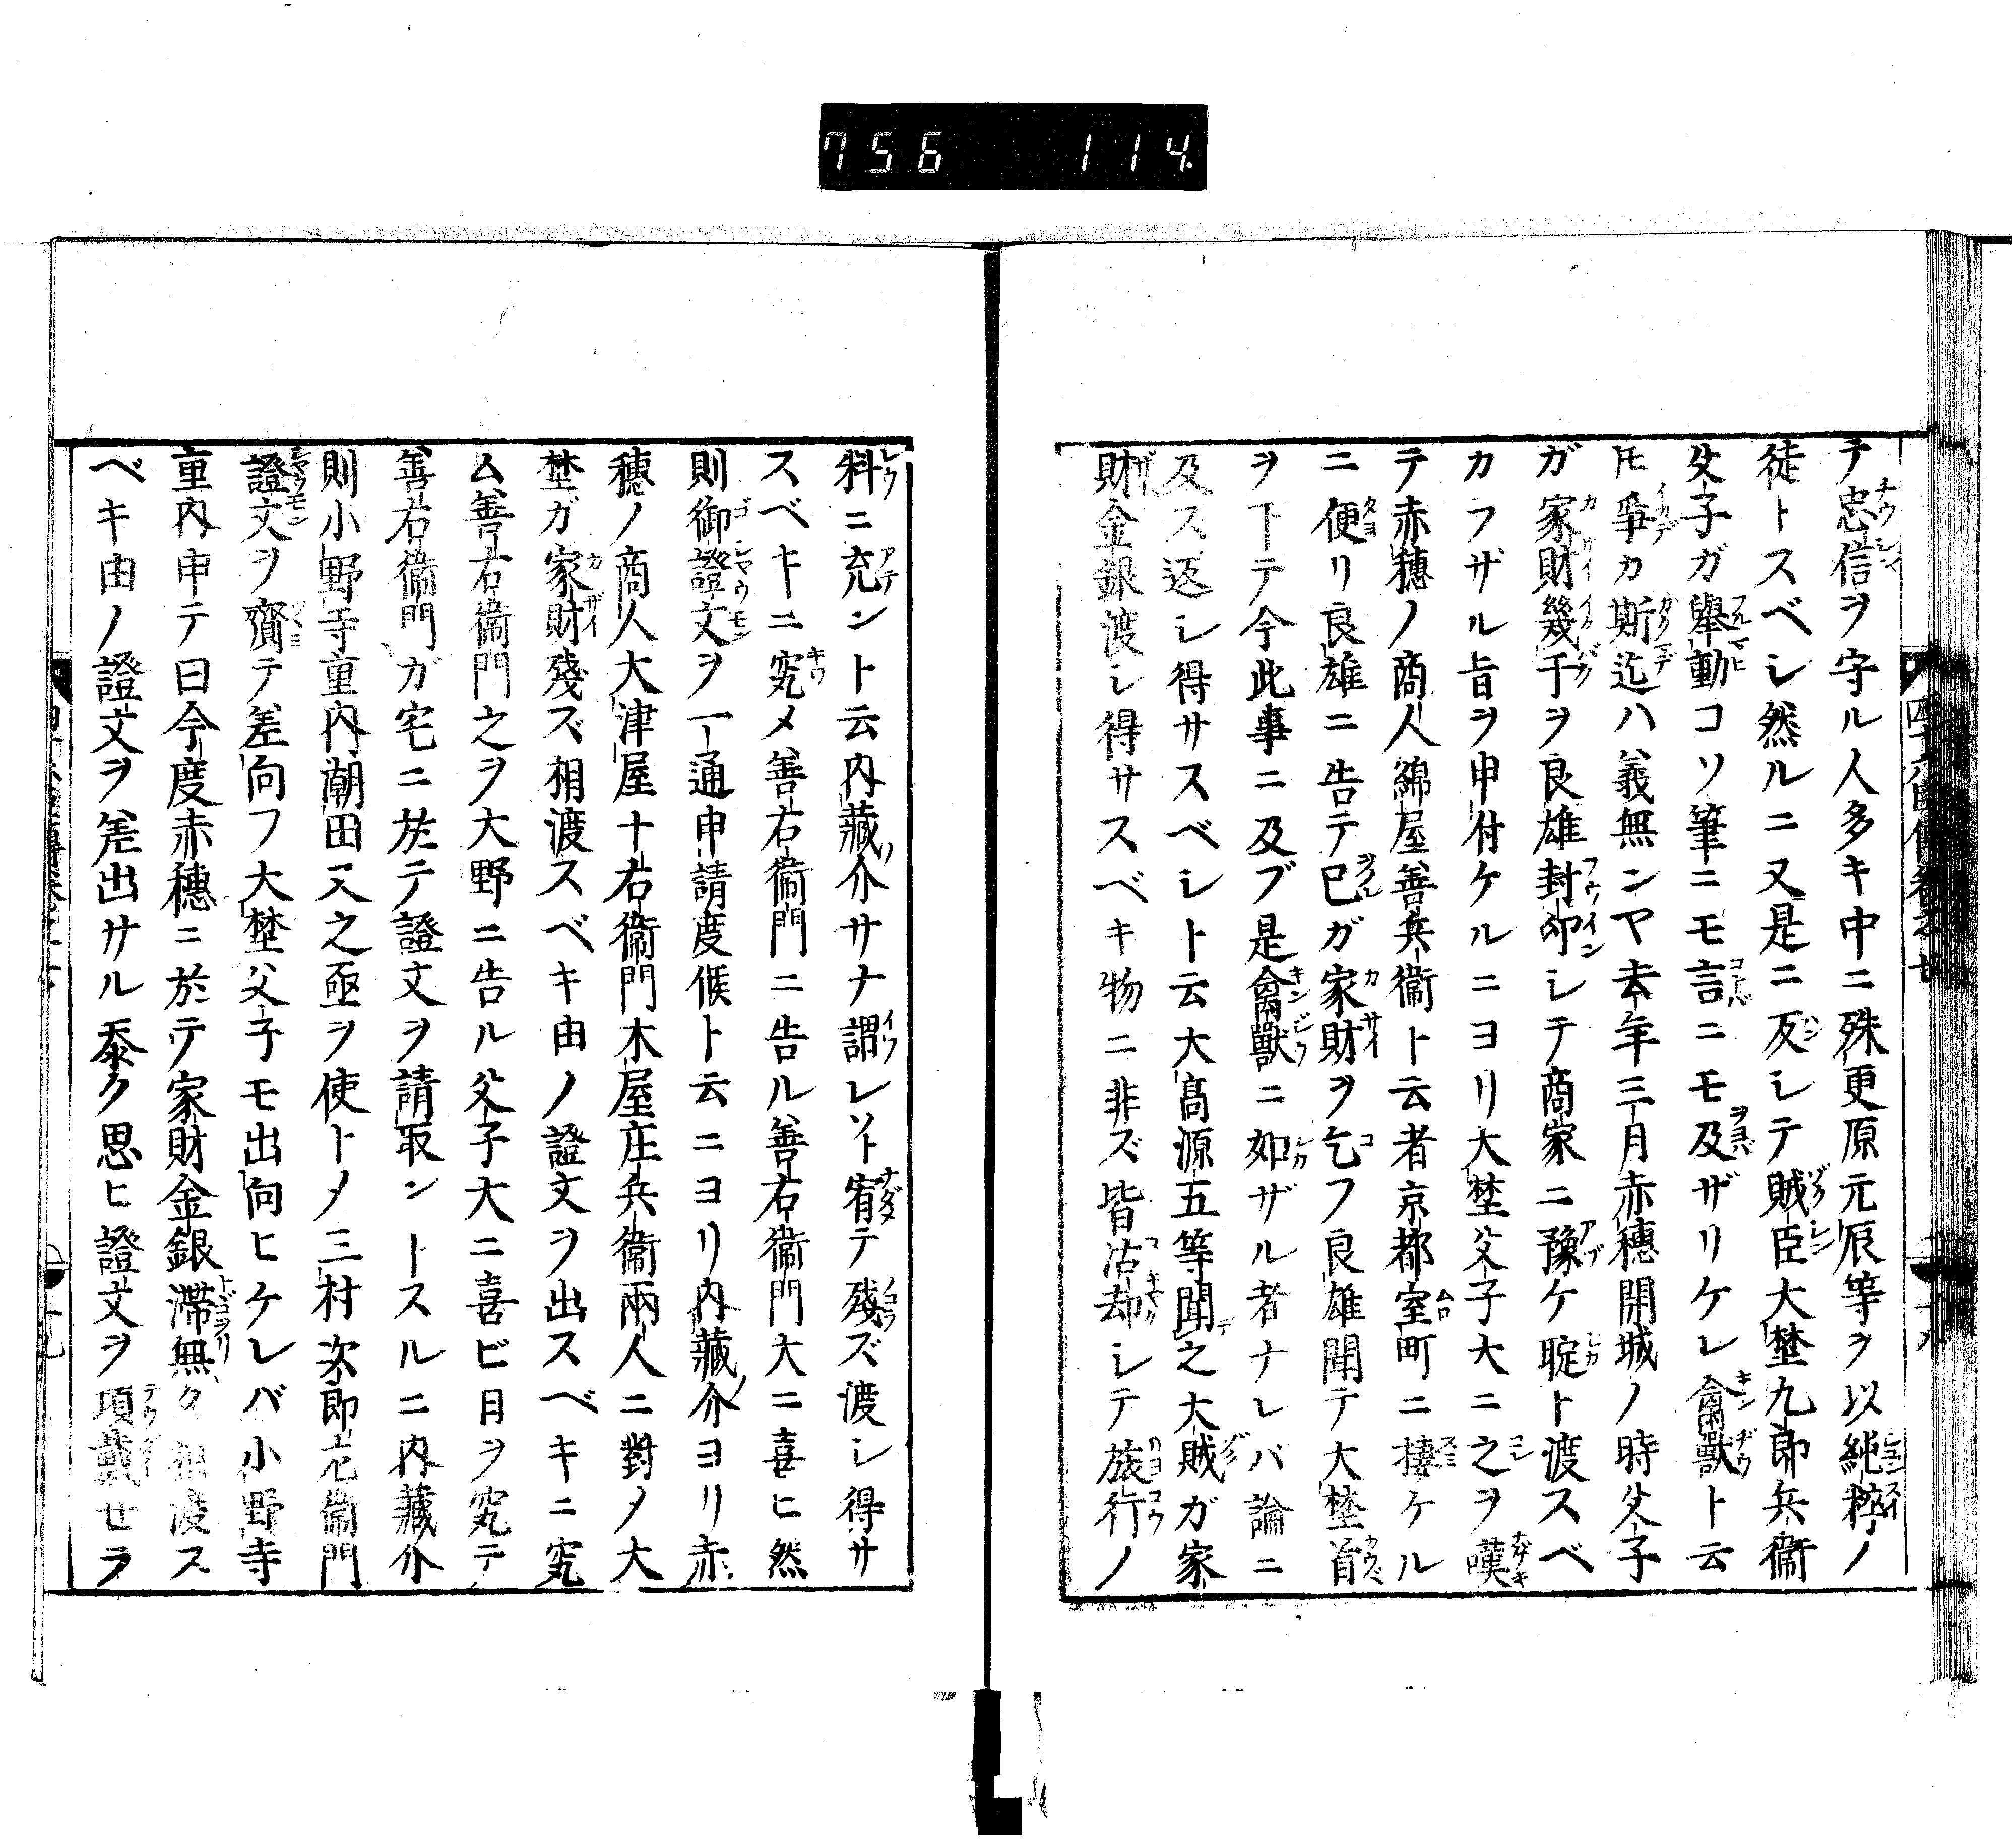 756 114
テ忠信ヲ守ル人多キ中ニ殊更原元辰等ヲ以純粹ノ
徒トスベシ然ルニ又是ニ反シテ賊臣大埜九郎兵衞
父子ガ擧動コソ筆ニモ言ニモ及ザリケレ禽獸ト云
ドモ爭カ斯迄ハ義無ンヤ去年三月赤穗開城ノ時父子
ガ家財幾千ヲ良雄封印シテ商家ニ豫ケ聢ト渡スベ
カラザル旨ヲ申付ケルニヨリ大埜父子大ニ之ヲ嘆
テ赤穗ノ商人綿屋善兵衞ト云者京都室町ニ棲ケル
ニ便リ良雄ニ告テ已ガ家財ヲ乞フ良雄聞テ大埜首
ヲ下テ今此事ニ及ブ是禽獸ニ如ザル者ナレバ論ニ
及ス返シ得サスベシト云大髙源五等聞之大賊ガ家
財金銀渡シ得サスベキ物ニ非ズ皆沽却シテ旅行ノ
料ニ充ント云内藏介サナ謂レソト宥テ殘ズ渡シ得サ
スベキニ究メ善右衞門ニ告ル善右衞門大ニ喜ヒ然
則御證文ヲ一通申請度候ト云ニヨリ内藏介ヨリ赤
穗ノ商人大津屋十右衞門木屋庄兵衞兩人ニ對メ大
埜ガ家財殘ズ相渡スベキ由ノ證文ヲ出スベキニ究
ム善右衞門之ヲ大野ニ告ル父子大ニ喜ビ日ヲ究テ
善右衞門ガ宅ニ於テ證文ヲ請取ントスルニ内藏介
則小野寺重内潮田又之亟ヲ使トメ三村次郎左衞門
證文ヲ齎テ差向フ大埜父子モ出向ヒケレバ小野寺
重内申テ曰今度赤穗ニ於テ家財金銀滯無ク相渡ス
ベキ由ノ證文ヲ差出サル忝ク思ヒ證文ヲ項戴セラ